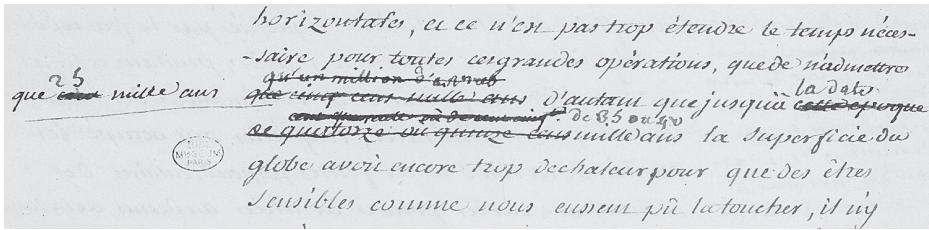 horizontales, et ce n'est pas trop étendre le temps néces-
-saire pour toutes ces grandes opérations, que de n'admettre
25
qu'un million d'années
que cent mille ans
la date
que cinq cens mille ans, d'autant que jusqu'à cette époque
de 35 ou 40
de quatorze ou quinze cens mille ans la superficie du
BIBL. MUSEUM PARIS
globe avoit encore trop de chaleur pour que des êtres
sensibles comme nous eussent pû la toucher, il n'y